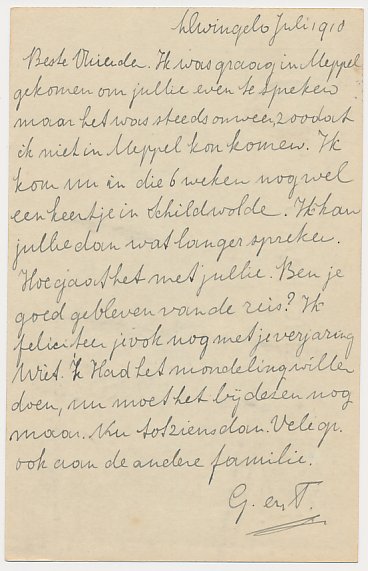 Dwingelo Juli 1910
Beste Vrienden. Ik was graag in Meppel
gekomen om jullie even te spreken
maar het was steeds onweer, zoodat
ik niet in Meppel kon komen. Ik
kom nu in die 6 weken nog wel
een keertje in Schildwolde. Ik kan
jullie dan wat langer spreken.
Hoe gaat het met jullie. Ben je
goed gebleven van de reis? Ik
feliciteer je ook nog met je verjaring
Wiet. Ik Had het mondeling willen
doen, nu moet het bij dezen nog
maar. Nu tot ziens dan. Vele gr.
ook aan de andere familie.
G. en T.